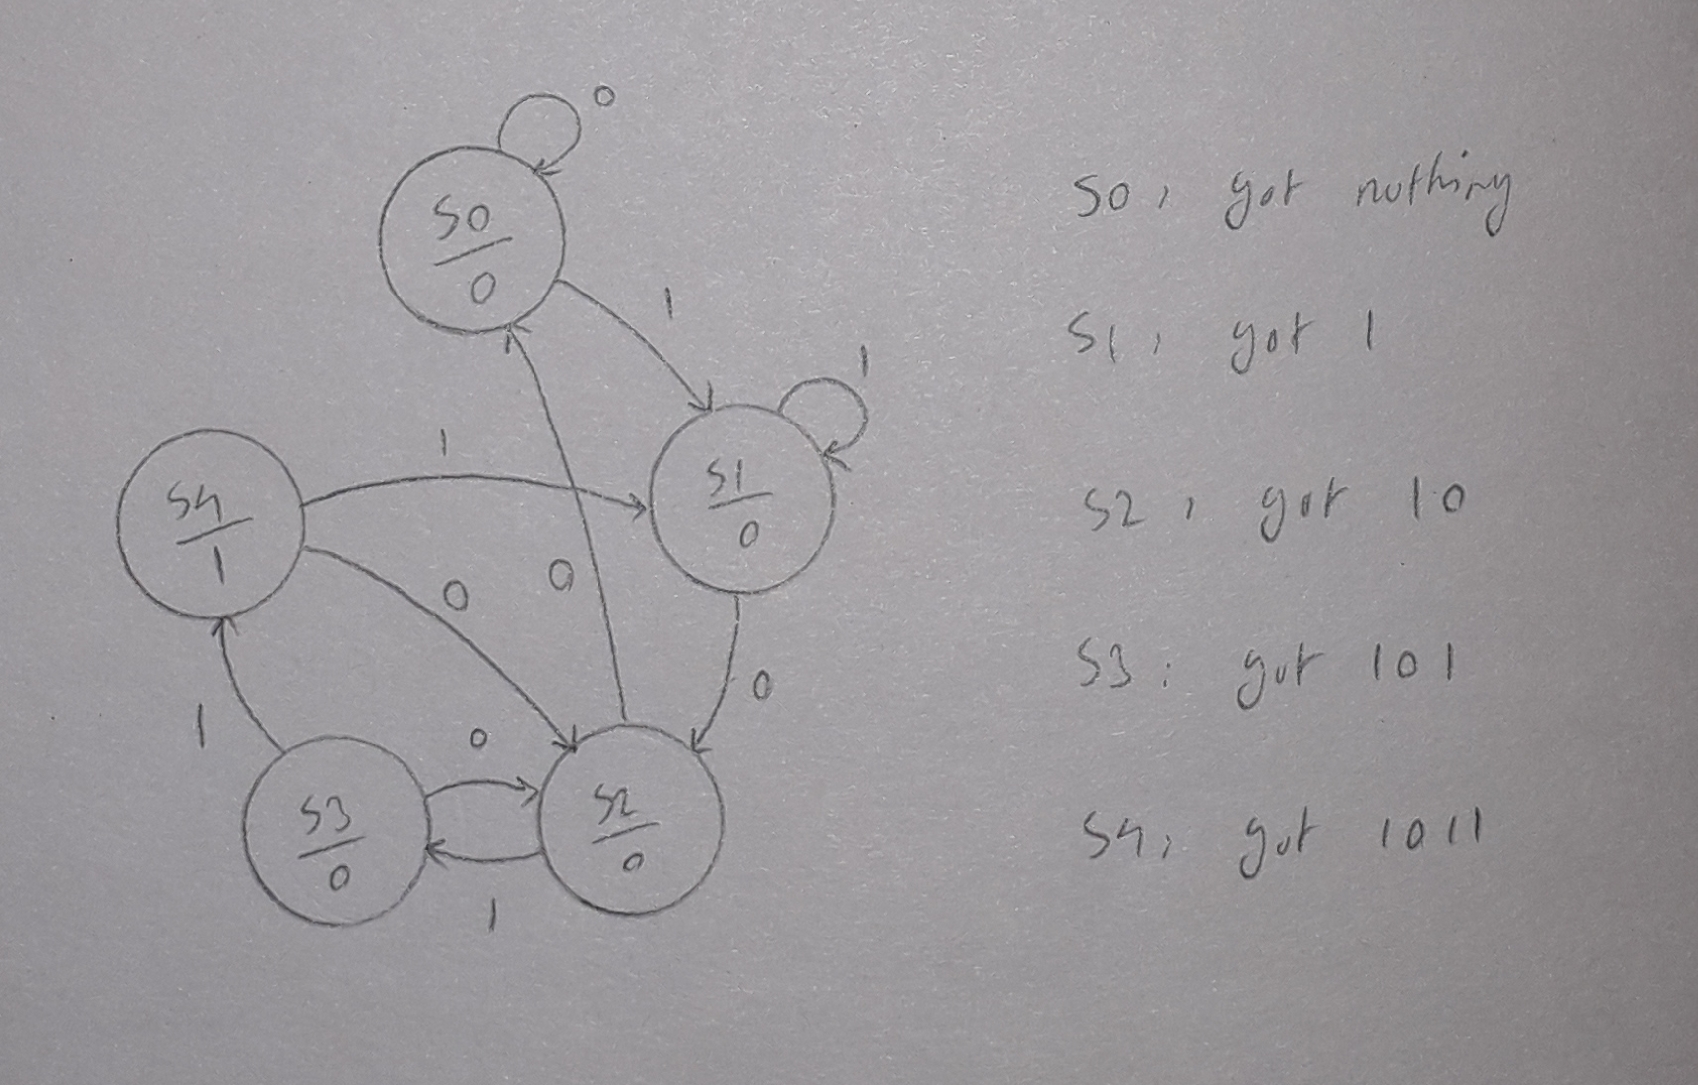 0
S0
0
1
1
S1
0
1
S4
1
0
0
0
1
0
S3
0
S2
0
1
S0: got nothing
S1: got 1
S2: got 10
S3: got 101
S4: got 1011